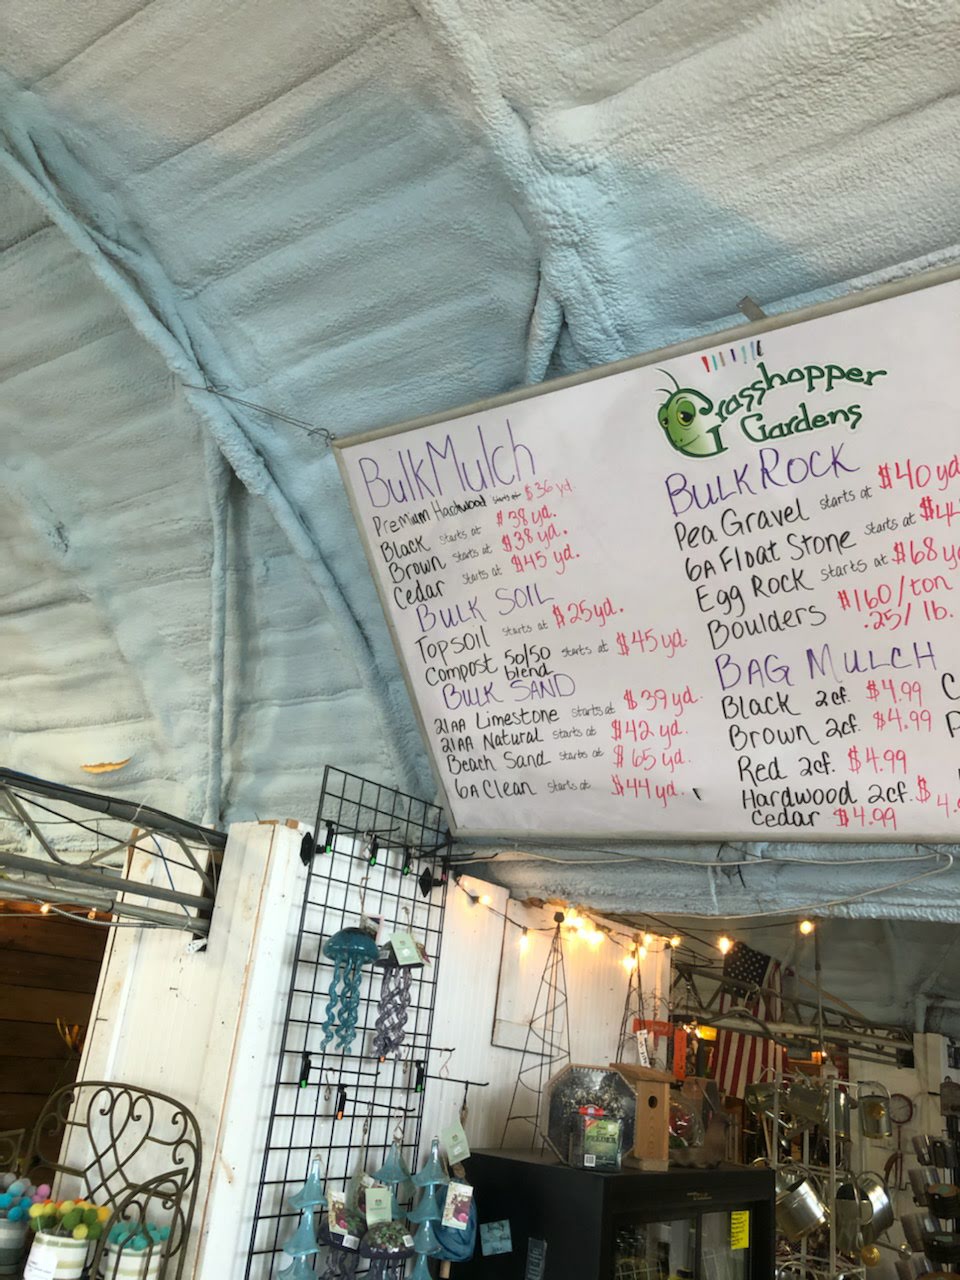 Grasshopper
Gardens
Bulk Mulch
Premium Hardwood starts at $36 yd.
Black starts at $38 yd.
Brown starts at $38 yd.
Cedar starts at $45 yd.
BULK SOIL
Topsoil starts at $25 yd.
Compost 50/50 blend starts at $45 yd.
BULK SAND
21AA Limestone starts at $39 yd.
21AA Natural starts at $42 yd.
Beach Sand starts at $65 yd.
6A Clean starts at $44 yd.
BULK ROCK
Pea Gravel starts at $40 yd
6A Float Stone starts at
Egg Rock starts at $68 yd
Boulders $160/ton
.25/lb.
BAG MULCH
Black 2cf. $4.99
Brown 2cf. $4.99
Red 2cf. $4.99
Hardwood 2cf. $
Cedar $4.99